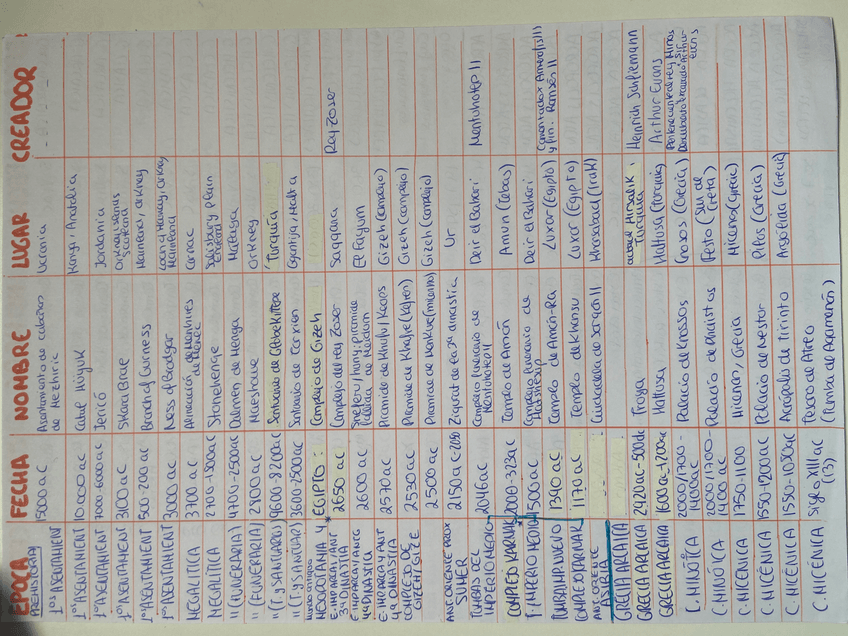 ÉPOCA FECHA NOMBRE LUGAR CREADOR
PREHISTORIA
1os ASENTAMIENT 15000 aC Asentamiento de cabañas de Mezhiric Ucrania
1os ASENTAMIENT 10000 aC Catal Hüyük Konya, Anatolia
1os ASENTAMIENT 7000-6000 aC Jericó Jordania
1os ASENTAMIENT 3100 aC Skara Brae Orkney islands Scotland
1os ASENTAMIENT 500-200 aC Broch of Gurness Mainland, Orkney
1os ASENTAMIENT 3000 aC Ness of Brodgar Mainland
MEGALÍTICA 3700 aC Alineación de Menhires Carnac
MEGALÍTICA 2700-1500 aC Stonehenge Salisbury plain England
" (FUNERARIA) 4770-2500 aC Dolmen de Menga Málaga
" (FUNERARIA) 2800 aC Maeshowe Orkney
" (T. y SANTUARI) 9600-8200 aC Santuario de Göbekli Tepe Turquía
" (T. y SANTUARI) 3600-2500 aC Santuario de Tarxien
MESOPOTAMIA Y EGIPTO: Complejo de Gizeh
3ª DINASTIA 2650 aC Complejo del rey Zoser Saqqara Rey Zoser
4ª DINASTIA 2600 aC Snefru/Huny: piramide de Meidum El Fayum
4ª DINASTIA 2570 aC Piramide de Khufu/Keops Gizeh (complejo)
COMPLEJO DE GIZEH 2530 aC Piramide de Khafre (Kefren) Gizeh (complejo)
2500 aC Piramide de Menkure (micerino) Gizeh (complejo)
ANT. ORIENTE PROX SUMER 2150 aC Zigurat de la 3ª dinastia Ur
TUMBAS DEL IMPERIO MEDIO 2046 aC Complejo funerario de Mentuhotep II Deir el Bahari Mentuhotep II
COMPLEJO KARNAK 2000-323 aC Templo de Amón Amun (Tebas)
T. IMPERIO MEDIO 1500 aC Complejo funerario de Hatshepsup Deir el Bahari
1390 aC Templo de Amón-Ra Luxor (Egipto) Comenzado x Amenofis III y fin. Ramsés II
COMPLEJO KARNAK 1170 aC Templo de Khonsu Luxor (Egipto)
ANT. ORIENTE ASIRIA Ciudadela de Sargón II Khorsabad (Irak)
GRECIA ARCAICA 2420 aC-500dc Troya actual Hirsalik, Turquía Heinrich Schliemann
GRECIA ARCAICA 1600 aC-1200 aC Hattusa Hattusa (Turquía) Arthur Evans
C. MINÓTICA 2000/1700-1400 aC Palacio de Cnossos Cnosos (Grecia) Minos Sir Arthur Evans
C. MINÓTICA 2000/1700-1400 aC Palacio de Phaistos Festo (Sur de Creta)
C. MICENICA 1750-1100 Micenas, Grecia Micenas (Grecia)
C. MICÉNICA 1550-1200 aC Palacio de Nestor Pilos (Grecia)
C. MICÉNICA 1550-1050 aC Acrópolis de Tirinto Argólida (Grecia)
C. MICÉNICA Siglo XIII aC (13) Tesoro de Atreo (Tumba de Agamenón)